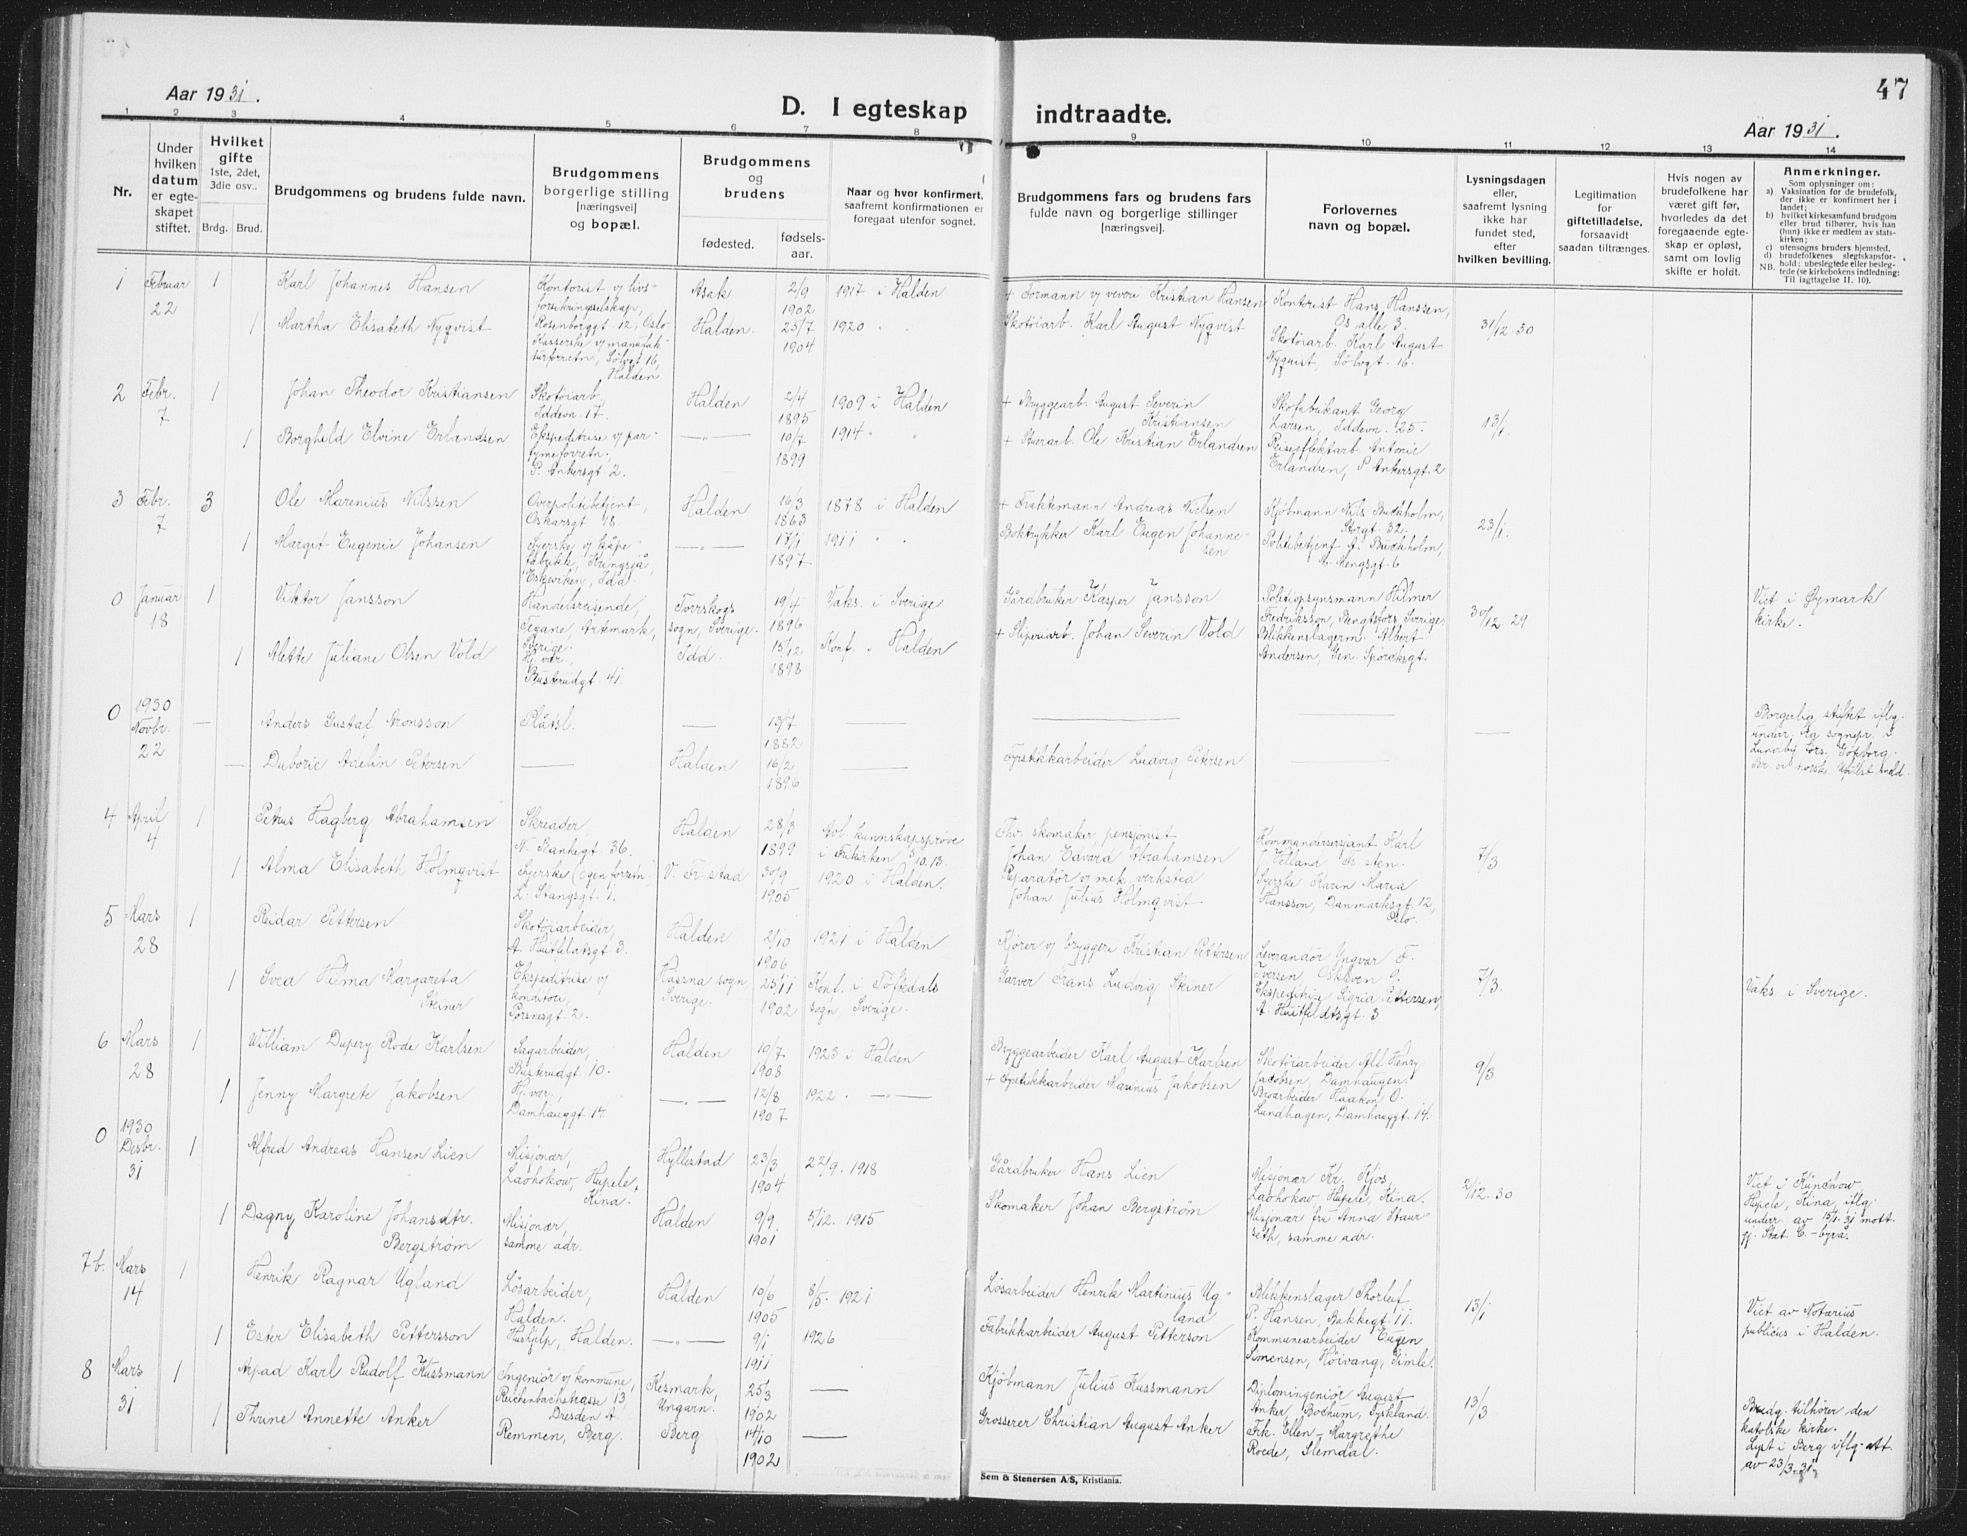 47
Aar 1931.
D. I egteskap indtraadte.
Aar 1931.
1 2 3 4 5 6 7 8 9 10 11 12 13 14
Nr.
Under hvilken datum er egteskapet stiftet.
Hvilket gifte 1ste, 2det, 3die osv..
Brdg. Brud.
Brudgommens og brudens fulde navn.
Brudgommens borgerlige stilling [næringsvei] og bopæl.
Brudgommens og brudens
fødested.
fødselsaar.
Naar og hvor konfirmert, saafremt konfirmationen er foregaat utenfor sognet.
Brudgommens fars og brudens fars fulde navn og borgerlige stillinger [næringsvei].
Forlovernes navn og bopæl.
Lysningsdagen eller, saafremt lysning ikke har fundet sted, efter hvilken bevilling.
Legitimation for giftetilladelse, forsaavidt saadan tiltrænges.
Hvis nogen av brudefolkene har været gift før, hvorledes da det foregaaende egteskap er opløst, samt om lovlig skifte er holdt.
Anmerkninger.
Som oplysninger om:
a) Vaksination for de brudefolk, der ikke er konfirmert her i landet;
b) hvilket kirkesamfund brudgom eller brud tilhører, hvis han (hun) ikke er medlem av statskirken;
c) utensogns bruders hjemsted,
d) brudefolkenes slegtskapsforhold; ubeslegtede eller beslegtede (se kirkebokens indledning: Til iagttagelse II. 10).
NB.
1 Februar 22 1 Karl Johannes Hansen Kontorist v/ livsforsikringsselskap, Rosenborggt 12, Oslo Asak 2/9 1902 1917 i Halden + Formann v/ veveri Kristian Hansen Kontorist Hans Hanssen, Os alle 3. 31/12 30
1 Martha Elisabeth Nyqvist Kasserske v/ manufakturforretn, Sølvgt 16, Halden Halden. 25/7 1904 1920 " " Skotøiarb. Karl August Nyqvist Skotøiarb. Karl August Nyquist, Sølvgt. 16.
2 Febr. 7 1 Johan Theodor Kristiansen Skotøiarb, Iddevn. 17. Halden 2/4 1895 1909 i Halden + Bryggearb. August Severin Kristiansen Skofabrikant Georg Larsen, Iddevn. 25. 13/1.
1 Borghild Elvine Erlandsen Ekspeditrise v/ parfymeforretn. P. Ankersgt 2. —"— 10/7 1899 1914 " " + Ole Kristian Erlandsen Reiseeffektarb. Antonie Erlandsen, P Ankersgt. 2
3 Febr. 7 3 Ole Marenius Nilssen Overpolitibetjent, Oskarsgt 18. Halden 16/3 1863 1878 i Halden + Andreas Nielsen Kjøbmann Nils Buckholm, Storgt. 32. 23/1.
1 Margit Eugenie Johansen Syerske v/ kåpefabrikk, Kringsjå, Eskeviken, Idd. —"— 17/1 1897 1911 " " Boktrykker Karl Eugen Johannesen Politibetjent A. Buckholm, M. Mengsgt. 6
0 Januar 18 1 Viktor Jansson Handelsreisende, Artemark, Sverige. Torrskogs sogn, Sverige. 19/4 1896 Vaks. i Sverige Gårdbruker Kasper Jansson Politiopsynsmann Hilmer Fredriksson, Bengtsfors, Sverige. 30/12. 29 Viet i Øymark kirke.
1 Alette Juliane Olsen Vold Hj. vær, Busterudgt. 41. Idd. 15/12 1898 Konf. " Halden + Sliperiarb. Johan Severin Vold Blikkenslagerm. Albert Andersen, Gen. Spørcksgt.
0 1930 Novbr. 22 — Anders Gustaf Aronsson Plåtsl. — 13/7 1882 — — — — Borgerlig stiftet iflg. underr. fra sognepr. i Lundby fors. Göteborg.
— Duborie Adelin Petersen — Halden 16/2 1896 — Fyrstikkarbeider Ludvig Petersen —
4 April 4 1 Petrus Hagberg Abrahamsen Skredder, N. Bankegt 36. Halden 28/3 1899 Avl. kunnskapsprøve i Frikirken 5/10. 13. Fhv. skomaker, pensjonist Johan Edvard Abrahamsen Kommandersersjant Karl J. Velland Fr.sten. 7/3
1 Alma Elisabeth Holmqvist Syerske (egen forretn.) L. Stangsgt. 1. V. Fr.stad 30/9 1905 1920 i Halden. Reparatør v/ mek. verksted Johan Julius Holmqvist Syerske Karin Maria Hansson, Danmarksgt. 12, Oslo.
5 Mars 28 1 Reidar Pettersen Skotøiarbeider, A. Huitfeldtsgt 3. Halden 2/10 1906 1921 i Halden Kjører v/ bryggeri Kristian Pettersen Leverandør Yngvar F. Iversen, Øskleven 9. 7/3.
1 Svea Hilma Margareta Skiner Ekspeditrise v/ konditori, Torsnesgt. 2. sogn Sverige. 25/11 1902 Konf. i sogn Sverige. Garver Frans Ludvig Skiner Ekspeditrise Sigrid Pettersen, A. Huitfeldtsgt. 3 Vaks i Sverige.
6 Mars 28 1 William Dupery Rode Karlsen Sagarbeider, Busterudgt 10. Halden 10/7 1908 1923 i Halden Bryggearbeider Karl August Karlsen Skotøiarbeider Alf Henry Jacobsen, Damhaugen. 9/3
1 Jenny Margrete Jakobsen Hj. vær, Damhauggt 14. —"— 12/8 1907 1922 —"— + Fyrstikkarbeider Marinius Jakobsen Broarbeider Haakon O. Lundhagen, Damhauggt. 14.
0 1930 Desbr. 31 1 Alfred Andreas Hansen Lien Misjonær, Laohokow, Hupele, Kina. Hyllestad 23/3 1904 22/9. 1918 Gårdbruker Hans Lien Misjonær Kr. Kjos, Laohokow Hupele, Kina. 2/12. 30 Viet i Kunchow, Hupele, Kina, iflg. underr. av 15/1. 31 mott. gj. Stat. C.-byrå.
1 Dagny Karoline Johansdtr. Bergstrøm Misjonær, samme adr. Halden 9/9. 1901 5/12. 1915 Skomaker Johan Bergstrøm Misjonær fru Anna Staurseth, samme adr.
7 b. Mars 14 1 Henrik Ragnar Ugland Løsarbeider, Halden. Halden 10/6 1905 8/5. 1921 Løsarbeider Henrik Martinius Ugland Blikkenslager Thorleif P. Hansen, Bakkegt. 11. 13/1 Viet av Notarius publicus i Halden.
1 Ester Elisabeth Pettersson Hushjelp, Halden. —"— 9/1 1911 1926 Fabrikkarbeider August Petterson Kommunearbeider Eugen Simensen, Høivang, Gimle.
8 Mars 31 1 Arpad Karl Rudolf Kussmann Ingeniør v/ kommune, Reichenbachstrasse 13, Dresden A. Kesmark, Ungarn. 25/3 1902 — Kjøbmann Julius Kussmann Diplomingeniør August Anker, Bochum, Tyskland. 13/3 Brudg. tilhører den katolske kirke. Lyst i Berg iflg. att. av 23/3. 31.
1 Thrine Annette Anker Remmen, Berg. Berg 14/10 1902 — Grosserer Christian August Anker Frk. Ellen-Margrethe Roede, Slemdal.
Sem & Stenersen A/S, Kristiania.